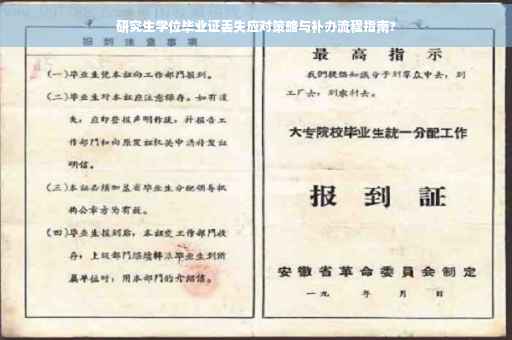 研究生学位毕业证丢失应对策略与补办流程指南?
报到注意事项
(一)毕业生凭本证向工作部门报到。
(二)毕业生对本证应注意保存。如有遗
失,应即登报声明作废,并报告工
作部门和向原发证机关申请补发证
明信。
(三)本证必须加盖省毕业生分配领导机
构公章方为有效。
(四)毕业生报到后,本证交工作部门收
存,上级部门继续转派毕业生到所
属单位时,用本部门的介绍信。
最高指示
我们提倡知识分子到群众中去,到
工厂去,到农村去。
大专院校毕业生统一分配工作
报到证
安徽省革命委员会制定
一九 年 月 日